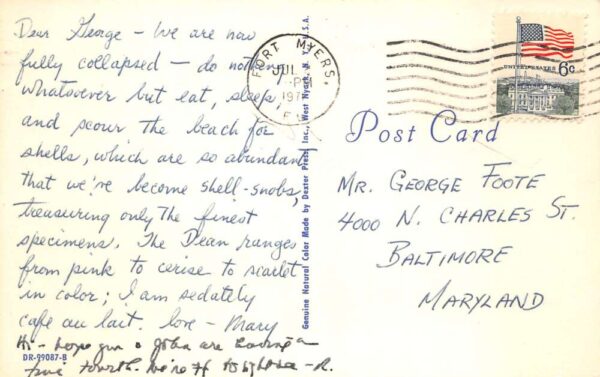 Dear George - We are now
fully collapsed - do nothing
whatsoever but eat, sleep,
and scour the beach for
shells, which are so abundant
that we've become shell-snobs,
treasuring only the finest
specimens. The Dean ranges
from pink to cerise to scarlet
in color; I am sedately
café au lait. love - Mary
Hi - hope you & John are having a
fourth. We're off to - R.
DR-99087-B
Genuine Natural Color Made by Dexter Press, Inc., West Nyack, N.Y. U.S.A.
FORT MYERS,
JUL
PM
197
UNITED STATES 6c
Post Card
MR. GEORGE FOOTE
4000 N. CHARLES ST.
BALTIMORE
MARYLAND